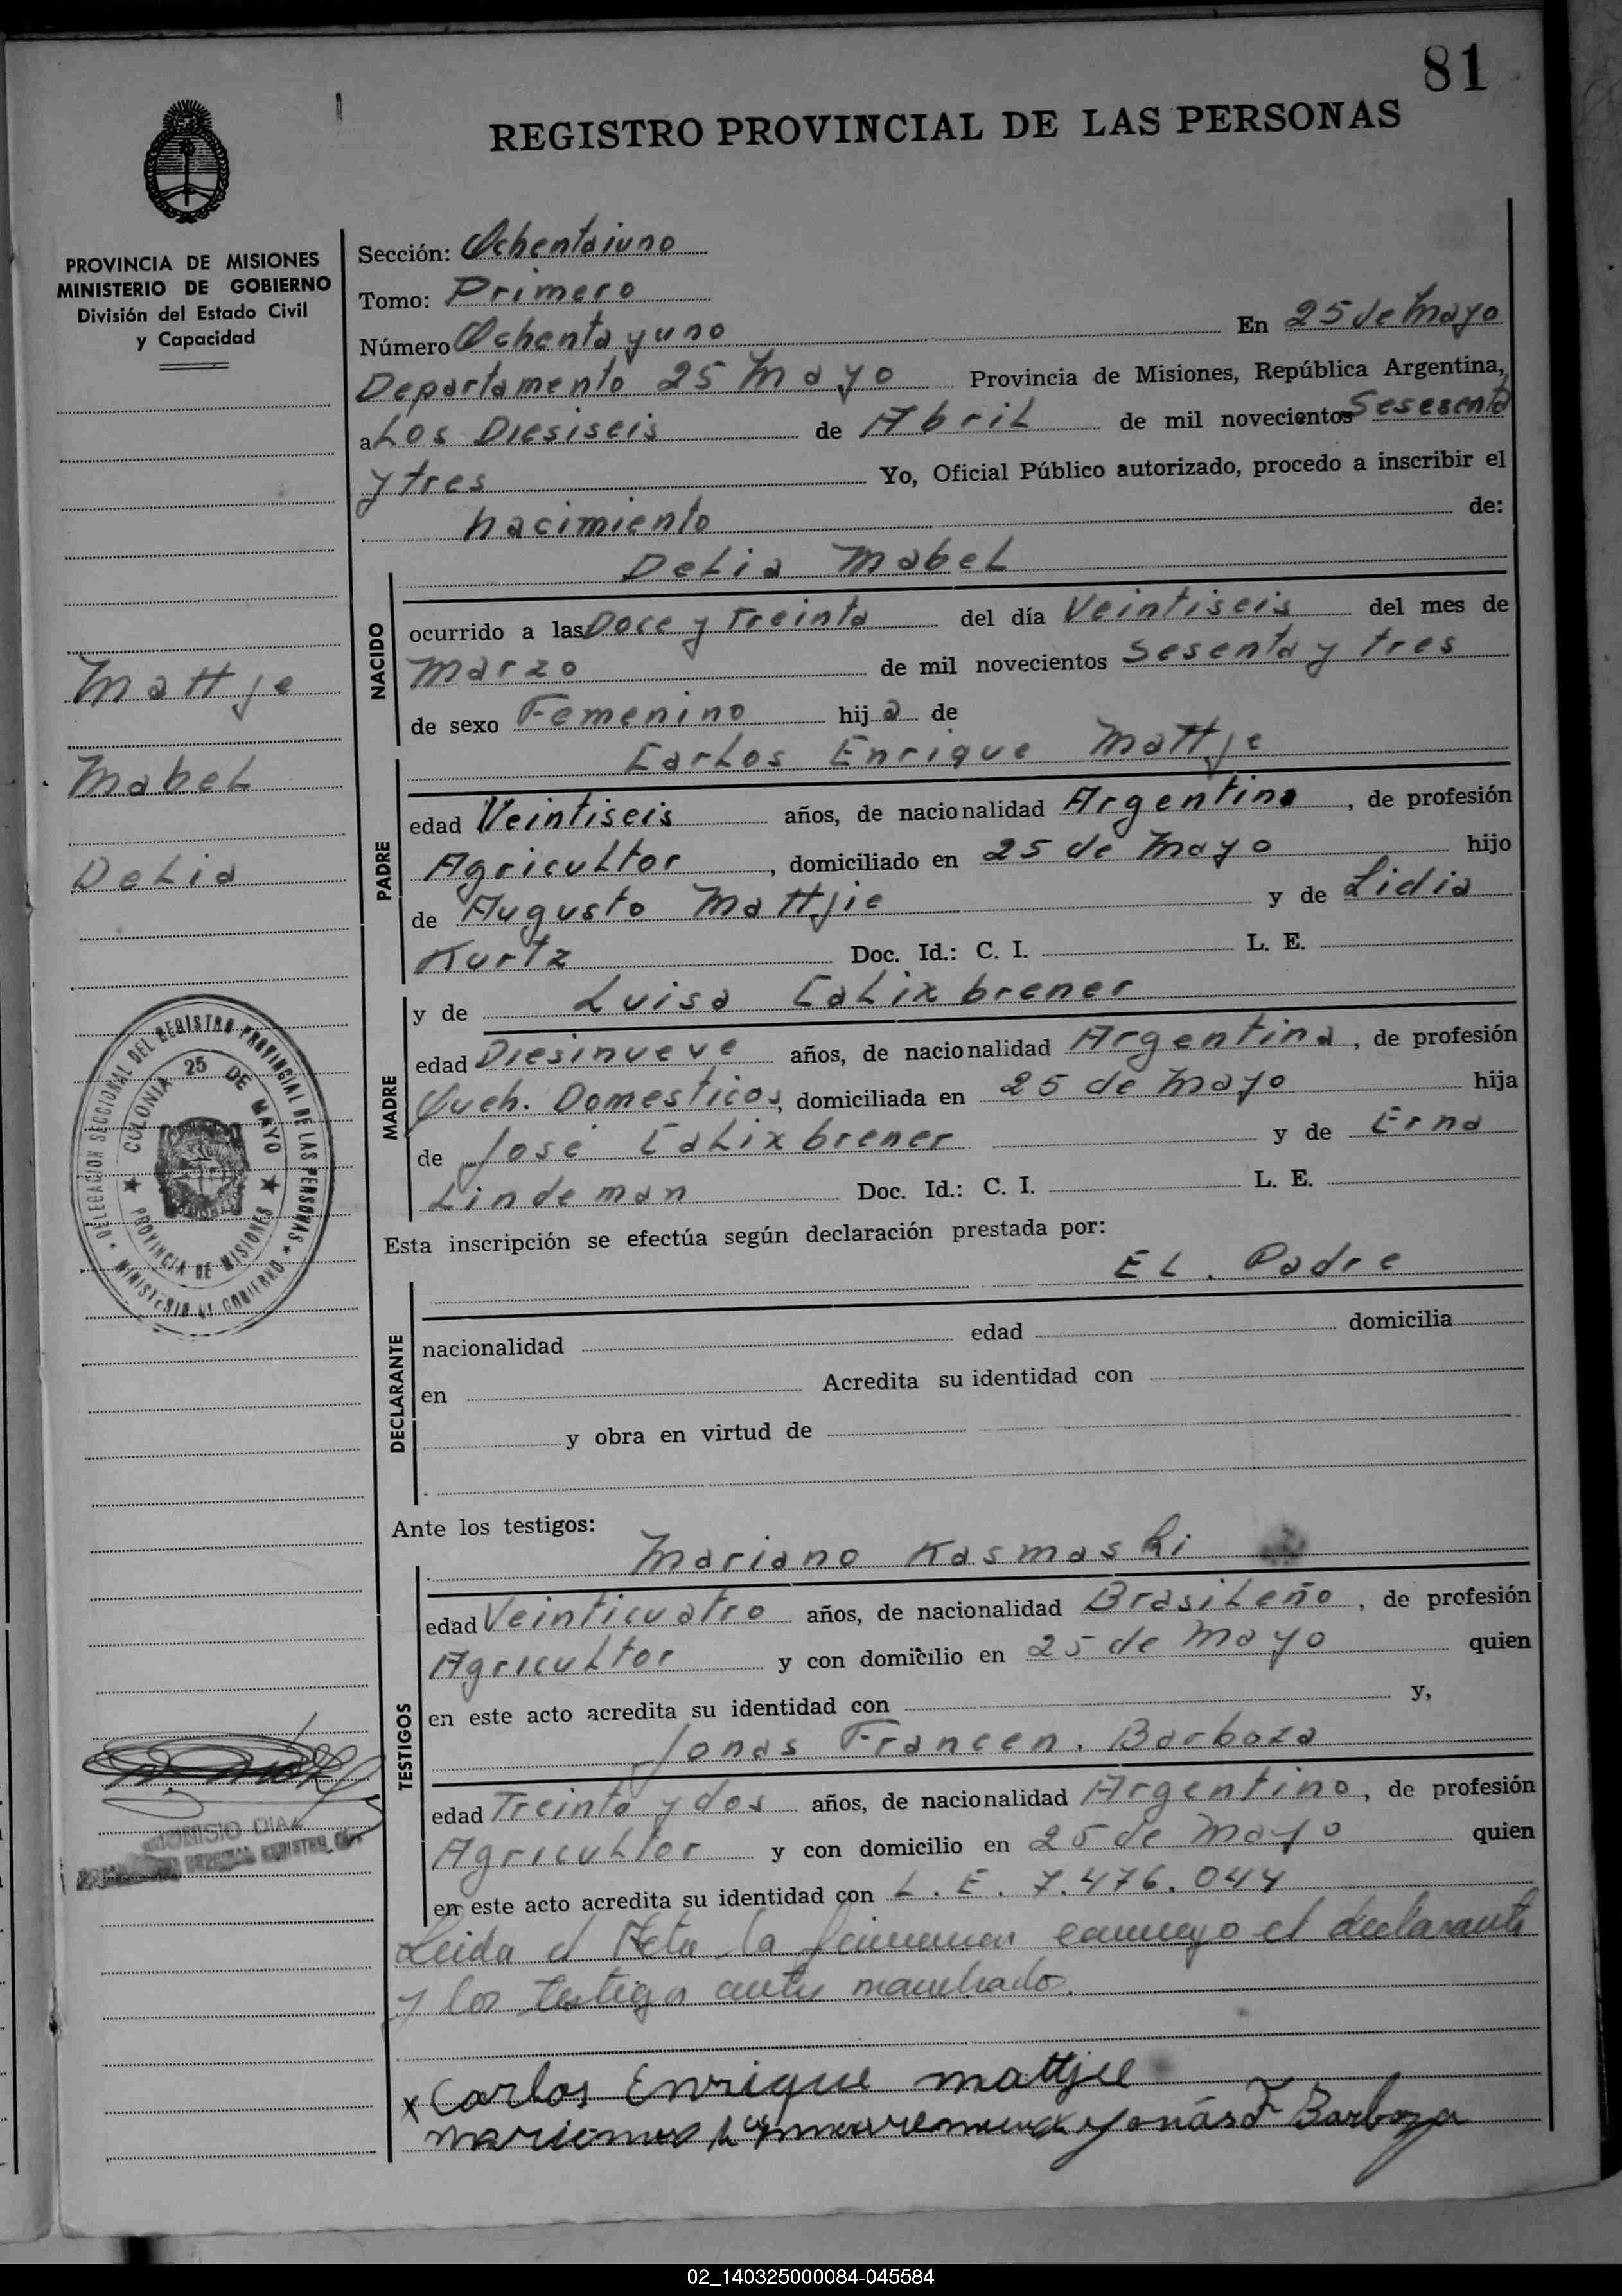 81
REGISTRO PROVINCIAL DE LAS PERSONAS
PROVINCIA DE MISIONES
MINISTERIO DE GOBIERNO
División del Estado Civil
y Capacidad
Sección: Ochentaiuno
Tomo: Primero
Número Ochenta y uno En 25 de Mayo
Departamento 25 Mayo Provincia de Misiones, República Argentina,
a Los Diesiseis de Abril de mil novecientos Sesesenta
y tres Yo, Oficial Público autorizado, procedo a inscribir el
nacimiento de:
Delia Mabel
NACIDO
ocurrido a las Doce y Treinta del día Veintiseis del mes de
Marzo de mil novecientos Sesenta y tres
de sexo Femenino hija de
Carlos Enrique Mattje
Mattje
Mabel
Delia
PADRE
edad Veintiseis años, de nacionalidad Argentina, de profesión
Agricultor, domiciliado en 25 de Mayo hijo
de Augusto Mattjie y de Lidia
Kurtz Doc. Id.: C. I. L. E.
MADRE
y de Luisa Calixbrener
edad Diesinueve años, de nacionalidad Argentina, de profesión
Queh. Domesticos, domiciliada en 25 de Mayo hija
de José Calixbrener y de Erna
Lindeman Doc. Id.: C. I. L. E.
DELEGACION SECCIONAL DEL REGISTRO PROVINCIAL DE LAS PERSONAS
MINISTERIO DE GOBIERNO
COLONIA 25 DE MAYO
PROVINCIA DE MISIONES
Esta inscripción se efectúa según declaración prestada por:
EL. Padre
DECLARANTE
nacionalidad edad domicilia
en Acredita su identidad con
y obra en virtud de
Ante los testigos:
Mariano Kasmaski
TESTIGOS
edad Veinticuatro años, de nacionalidad Brasileño, de profesión
Agricultor y con domicilio en 25 de Mayo quien
en este acto acredita su identidad con y,
Jonas Francen. Barboza
edad Treinta y dos años, de nacionalidad Argentino, de profesión
Agricultor y con domicilio en 25 de Mayo quien
en este acto acredita su identidad con L. E. 7.476.044
DIONISIO DIAZ
Leida el Acta la firmaran conmigo el declarante
y los testigos antes
x Carlos Enrique mattjie
Jonás F Barboza
02_140325000084-045584